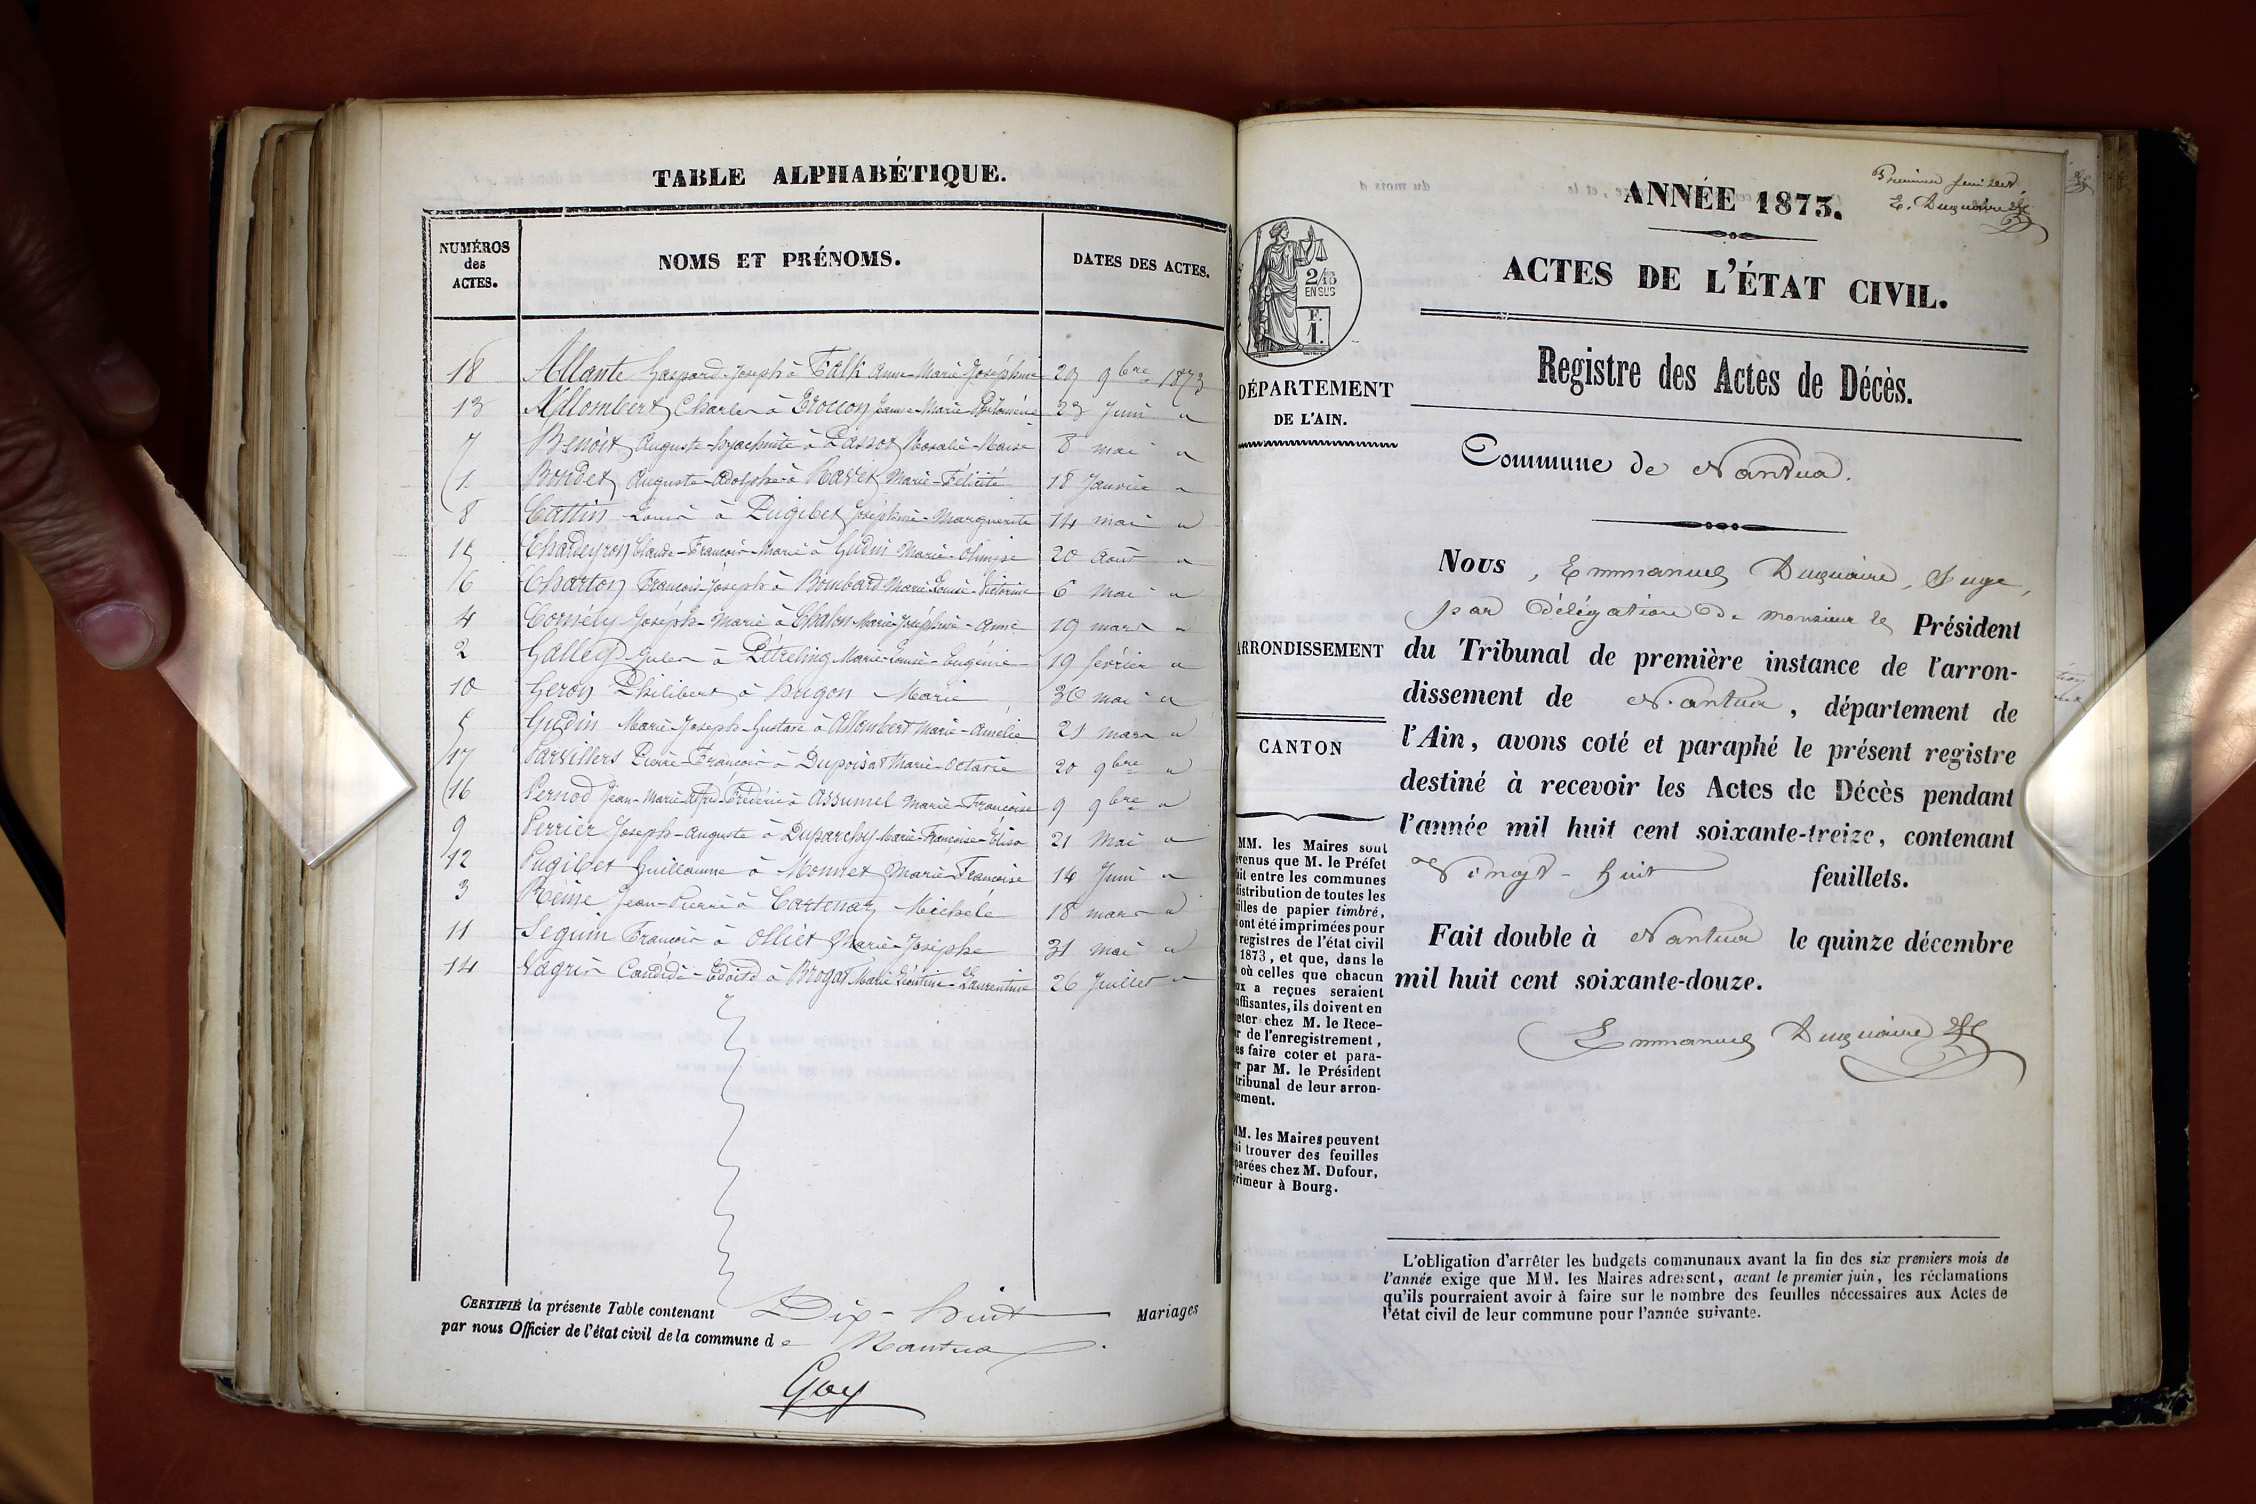 TABLE ALPHABÉTIQUE.
NUMÉROS
des
ACTES.
NOMS ET PRÉNOMS.
DATES DES ACTES.
18 Allante Gaspard-Joseph à Falk Anne-Marie Joséphine 29 9bre 1873
13 Allombert Charles à Croccon Jeanne-Marie 23 Juin "
7 Benoit Auguste-Hyacinthe à Passot Rosalie-Marie 8 mai "
1 Bondet Auguste-Adolphe à Ravet Marie-Félicité 18 Janvier "
8 Cattin Louis à Pugibet Joséphine-Marguerite 14 mai "
15 Chardeyron Claude-François-Marie à Gudin Marie 20 août "
6 Charton François-Joseph à Bombard Marie-Louise-Victorine 6 mai "
4 Cornély Joseph-Marie à Chalon Marie-Joséphine-Anne 19 mars "
2 Galley Jules à Pétreling Marie-Louise-Eugénie 19 février "
10 Geroy Philibert à Hugon Marie 30 mai "
5 Gudin Marie-Joseph-Gustave à Allombert Marie-Amélie 21 mars "
17 Parvillers Pierre-François à Dupoisat Marie-Octavie 20 9bre "
16 Pernod Jean-Marie-Alfred-Frédéric à Assumel Marie-Françoise 9 9bre "
9 Perrier Joseph-Auguste à Duparchy Marie-Françoise-Élisa 21 Mai "
12 Pugibet Guillaume à Monnet Marie-Françoise 14 Juin "
3 Reine Jean-Pierre à Cartenaz Michele 18 mars "
11 Seguin François à Olliet Marie-Josephe 31 mai "
14 Vagrin à Brogat Marie Léontine-Laurentine 26 Juillet "
CERTIFIÉ la présente Table contenant Dix-huit Mariages
par nous Officier de l'état civil de la commune de Nantua.
Goy
Premier feuillet
E. Duquaire
ANNÉE 1873.
ACTES DE L'ÉTAT CIVIL.
2/10
EN SUS
F.
1.
Registre des Actes de Décès.
DÉPARTEMENT
DE L'AIN.
Commune de Nantua.
ARRONDISSEMENT
CANTON
Nous, Emmanuel Duquaire, Juge,
par délégation de monsieur le Président
du Tribunal de première instance de l'arron-
dissement de Nantua, département de
l'Ain, avons coté et paraphé le présent registre
destiné à recevoir les Actes de Décès pendant
l'année mil huit cent soixante-treize, contenant
Vingt-huit feuillets.
Fait double à Nantua le quinze décembre
mil huit cent soixante-douze.
Emmanuel Duquaire
MM. les Maires sont
évenus que M. le Préfet
ait entre les communes
distribution de toutes les
illes de papier timbré,
i ont été imprimées pour
registres de l'état civil
1873, et que, dans le
où celles que chacun
ux a reçues seraient
uffisantes, ils doivent en
eter chez M. le Rece-
r de l'enregistrement,
es faire coter et para-
er par M. le Président
tribunal de leur arron-
sement.
MM. les Maires peuvent
si trouver des feuilles
parées chez M. Dufour,
primeur à Bourg.
L'obligation d'arrêter les budgets communaux avant la fin des six premiers mois de
l'année exige que MM. les Maires adressent, avant le premier juin, les réclamations
qu'ils pourraient avoir à faire sur le nombre des feuilles nécessaires aux Actes de
l'état civil de leur commune pour l'année suivante.